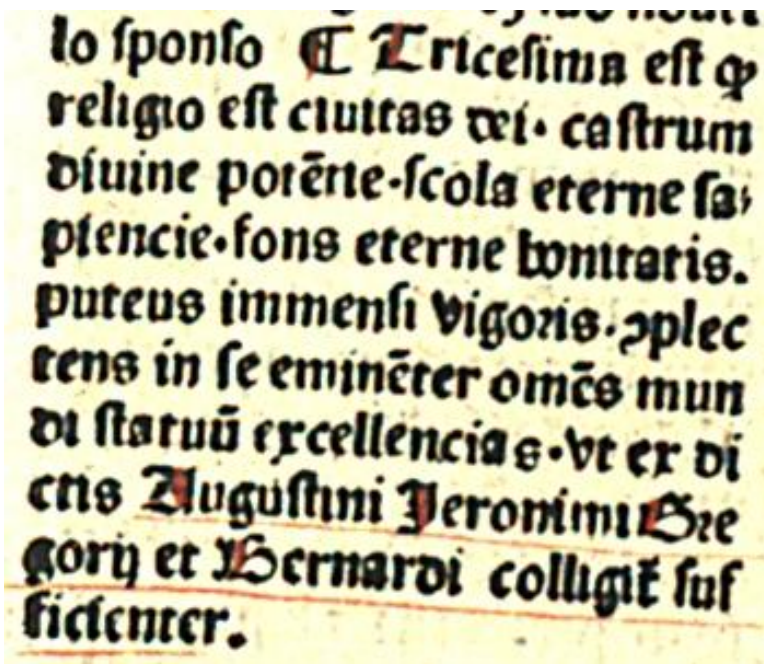 lo ſponſo ¶ Triceſima eſt ꝙ
religio eſt ciuitas dei. caſtrum
diuine potētie. ſcola eterne ſa⸗
piencie. fons eterne bonitatis.
puteus immenſi vigoꝛis. ꝯplec
tens in ſe eminēter omēs mun
di ſtatuū excellencias. vt ex di
ctis Auguſtini Jeronimi Gꝛe
gorij et Bernardi colligit᷑ ſuf
ficienter.